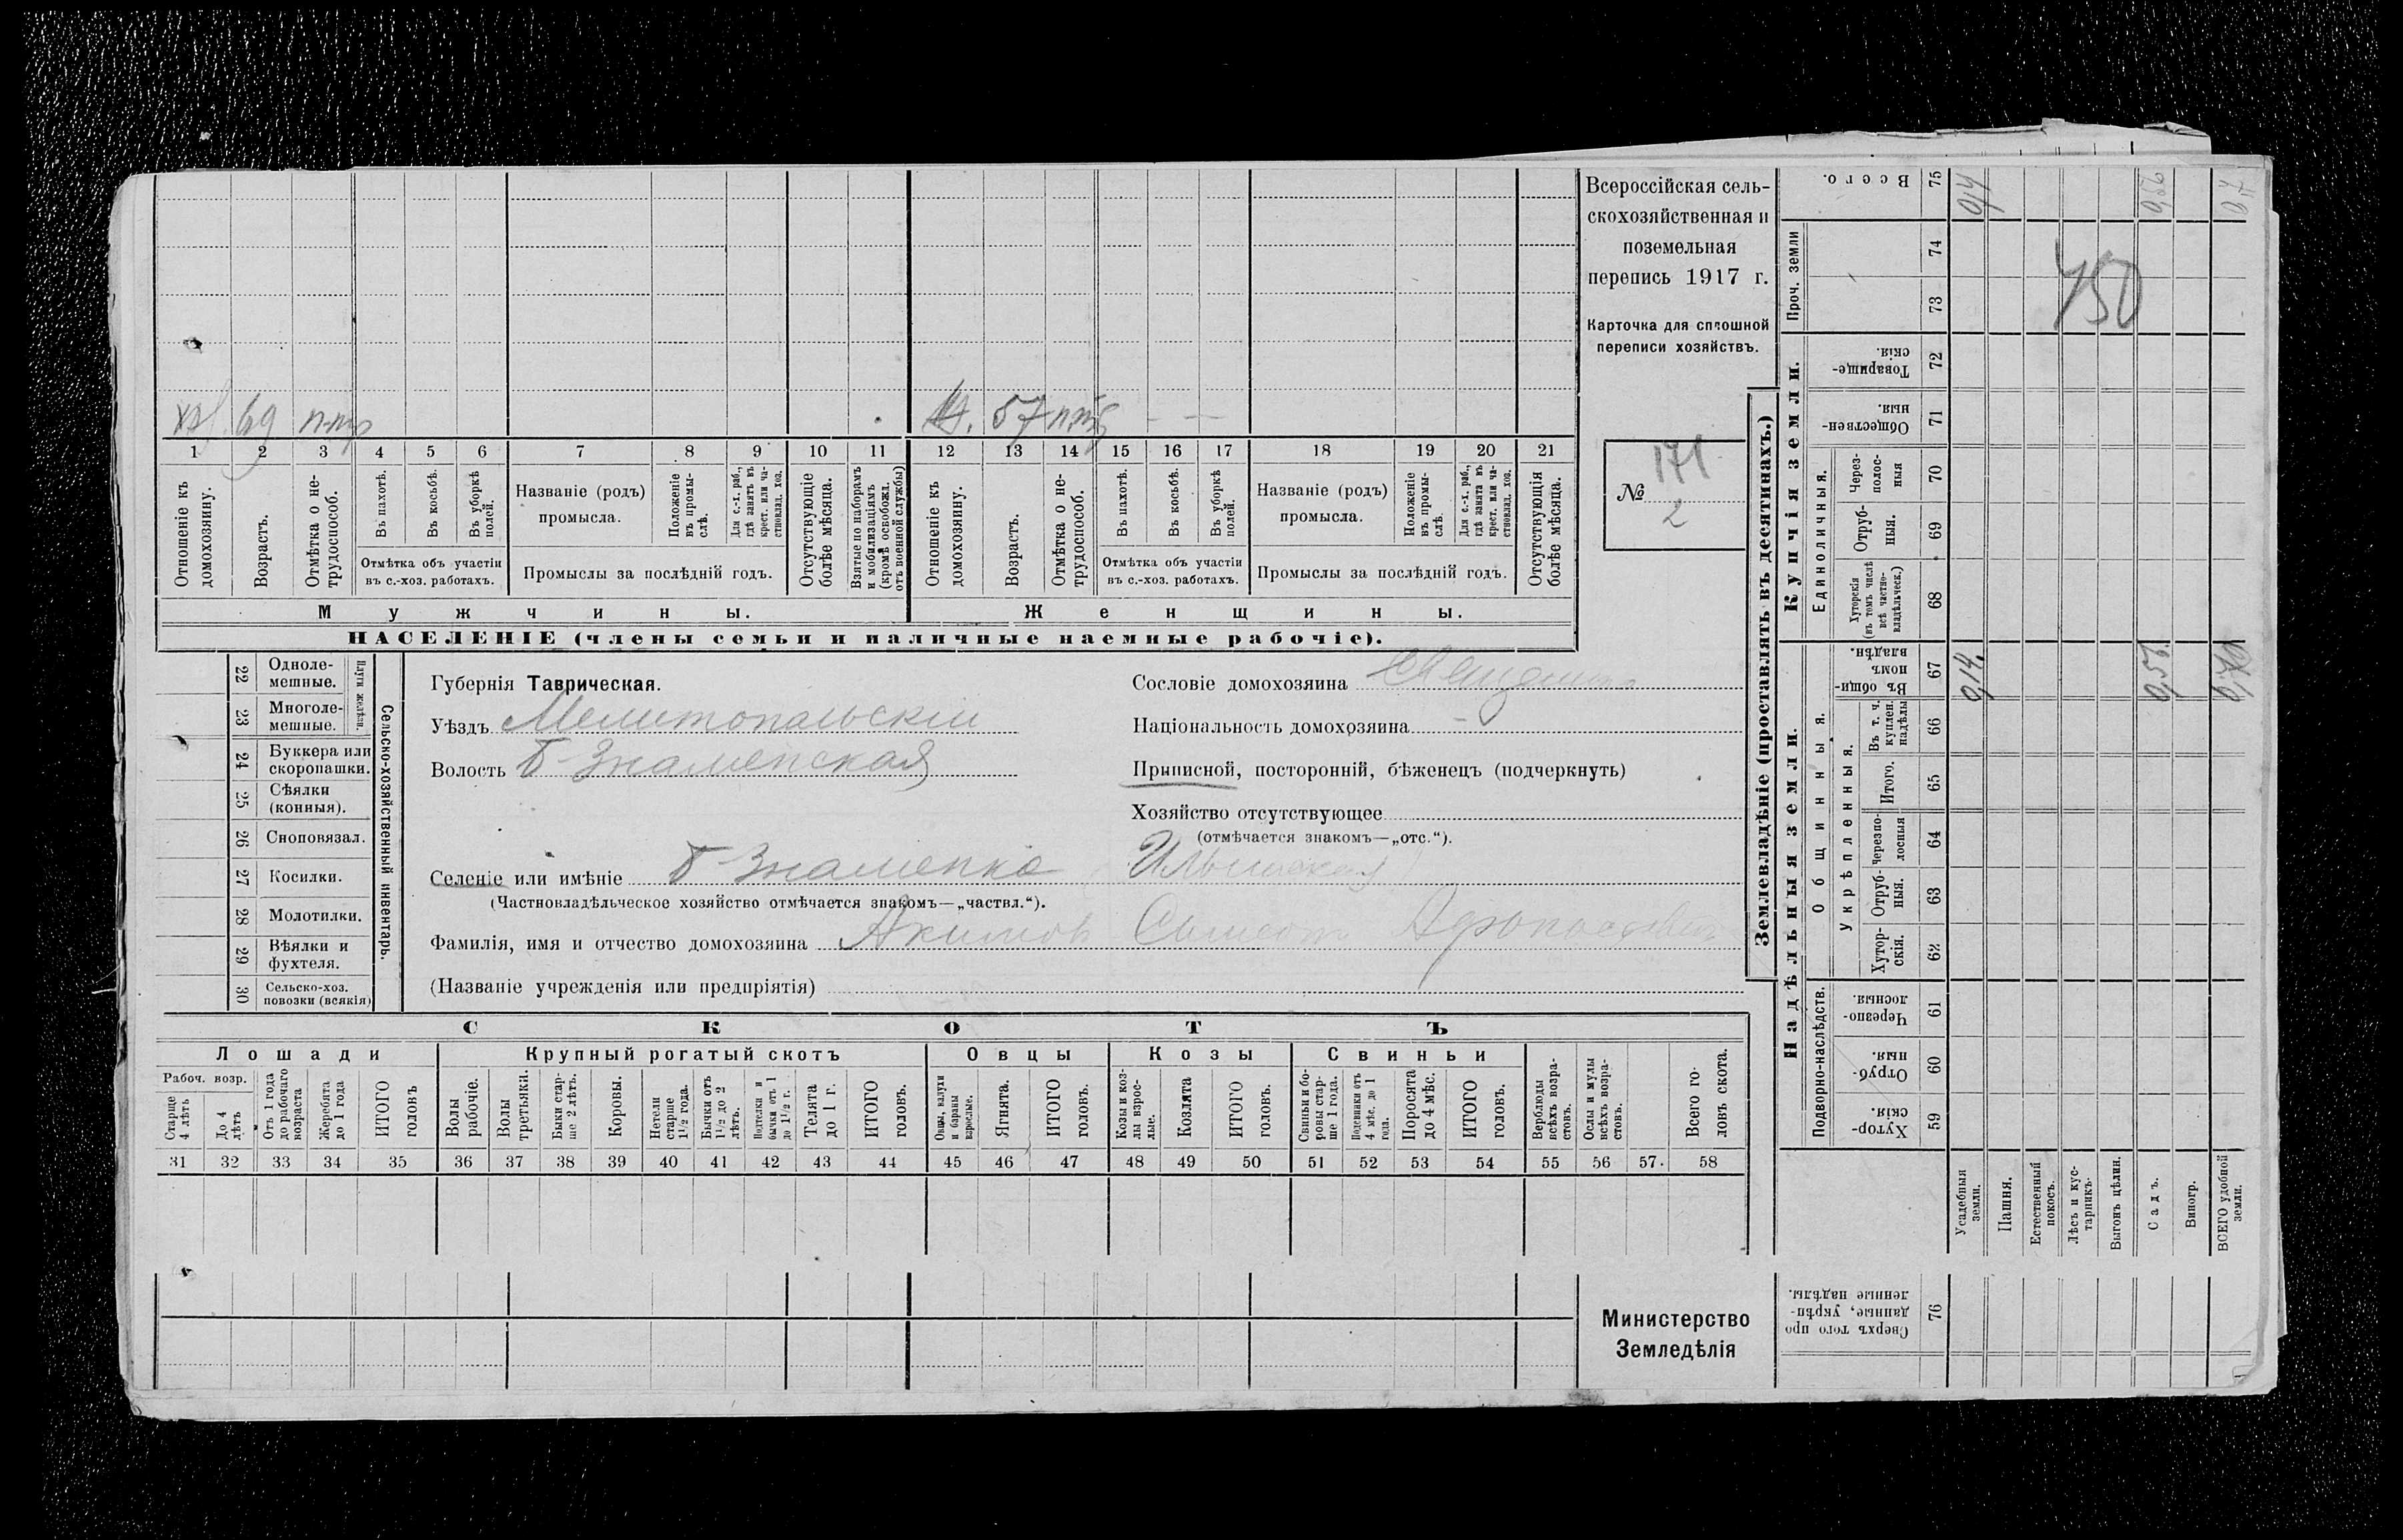 Всероссійская сель-
скохозяйственная и
поземельная
перепись 1917 г.
Карточка для сплошной
переписи хозяйствъ.
№ 171
2
69
57
1 2 3 4 5 6 7 8 9 10 11 12 13 14 15 16 17 18 19 20 21
Отношеніе къ домохозяину.
Возрастъ.
Отмѣтка о не-
трудоспособ.
Въ пахотѣ.
Въ косьбѣ.
Въ уборкѣ
полей.
Отмѣтка объ участіи
въ с.-хоз. работахъ.
Названіе (родъ)
промысла.
Положеніе
въ промы-
слѣ.
Для с.-х. раб.,
гдѣ занятъ въ
крест. или ча-
стновлад. хоз.
Промыслы за послѣдній годъ.
Отсутствующіе
болѣе мѣсяца.
Взятые по наборамъ
и мобилизаціямъ
(кромѣ освобожд.
отъ военной службы)
Отношеніе къ
домохозяину.
Возрастъ.
Отмѣтка о не-
трудоспособ.
Въ пахотѣ.
Въ косьбѣ.
Въ уборкѣ
полей.
Отмѣтка объ участіи
въ с.-хоз. работахъ.
Названіе (родъ)
промысла.
Положеніе
въ промы-
слѣ
Для с.-х. раб.,
гдѣ занята въ
крест. или ча-
стновлад. хоз.
Промыслы за послѣдній годъ.
Отсутствующія
болѣе мѣсяца.
Мужчины.
Женщины.
НАСЕЛЕНІЕ (члены семьи и наличные наемные рабочіе).
22 Одноле-
мешные.
23 Многоле-
мешные.
24 Буккера или
скоропашки.
25 Сѣялки
(конныя).
26 Сноповязал.
27 Косилки.
28 Молотилки.
29 Вѣялки и
фухтеля.
30 Сельско-хоз.
повозки (всякія)
Сельско-хозяйственный инвентарь.
Губернія Таврическая.
Уѣздъ Мелитопольскій
Волость Б-Знаменская
Селеніе или имѣніе Б-Знаменка
(Частновладѣльческое хозяйство отмѣчается знакомъ—„частвл.“).
Фамилія, имя и отчество домохозяина Акимов
(Названіе учрежденія или предпріятія)
Сословіе домохозяина
Національность домохозяина -
Приписной, посторонній, бѣженецъ (подчеркнуть)
Хозяйство отсутствующее
(отмѣчается знакомъ—„отс.“).
СКОТЪ
Лошади
Крупный рогатый скотъ
Овцы
Козы
Свиньи
Рабоч. возр.
Старше
4 лѣтъ
До 4
лѣтъ
Отъ 1 года
до рабочаго
возраста
Жеребята
до 1 года
ИТОГО
головъ
Волы
рабочіе.
Волы
третьяки.
Быки стар-
ше 2 лѣтъ.
Коровы.
Нетели
старше
1½ года.
Бычки отъ
1½ до 2
лѣтъ.
Подтелки и
бычки отъ 1
до 1½ г.
Телята
до 1 г.
ИТОГО
головъ.
Овцы, валухи
и бараны
взрослые.
Ягнята.
ИТОГО
головъ.
Козы и коз-
лы взрос-
лые.
Козлята
ИТОГО
головъ.
Свиньи и бо-
ровы стар-
ше 1 года.
Подсвинки отъ
4 мѣс. до 1
года.
Поросята
до 4 мѣс.
ИТОГО
головъ.
Верблюды
всѣхъ возра-
стовъ.
Ослы и мулы
всѣхъ возра-
стовъ.
Всего го-
ловъ скота.
31 32 33 34 35 36 37 38 39 40 41 42 43 44 45 46 47 48 49 50 51 52 53 54 55 56 57. 58
Министерство
Земледѣлія
Землевладѣніе (проставлять въ десятинахъ.)
Надѣльныя земли.
Купчія земли.
Проч. земли
Всего.
Подворно-наслѣдств.
Общинныя.
Укрѣпленныя.
Единоличныя.
Хутор-
скія. 59
Отруб-
ныя. 60
Черезпо-
лосныя. 61
Хутор-
скія. 62
Отруб-
ныя. 63
Черезпо-
лосныя 64
Итого. 65
Въ т. ч.
куплен.
надѣлы 66
Въ общин-
номъ
владѣн. 67
Хуторскія
(въ томъ числѣ
всѣ частно-
владѣльческ.) 68
Отруб-
ныя. 69
Через-
полос-
ныя 70
Обществен-
ныя. 71
Товарище-
скія. 72
73
74
75
Усадебныя
земли.
0,14.
Пашня.
Естественный
покосъ.
Лѣсъ и кус-
тарникъ.
Выгонъ цѣлин.
Садъ.
0,56.
0,56
Виногр.
ВСЕГО удобной
земли.
0,70
0,7
450
Сверхъ того про
данные, укрѣп-
ленные надѣлы.
76